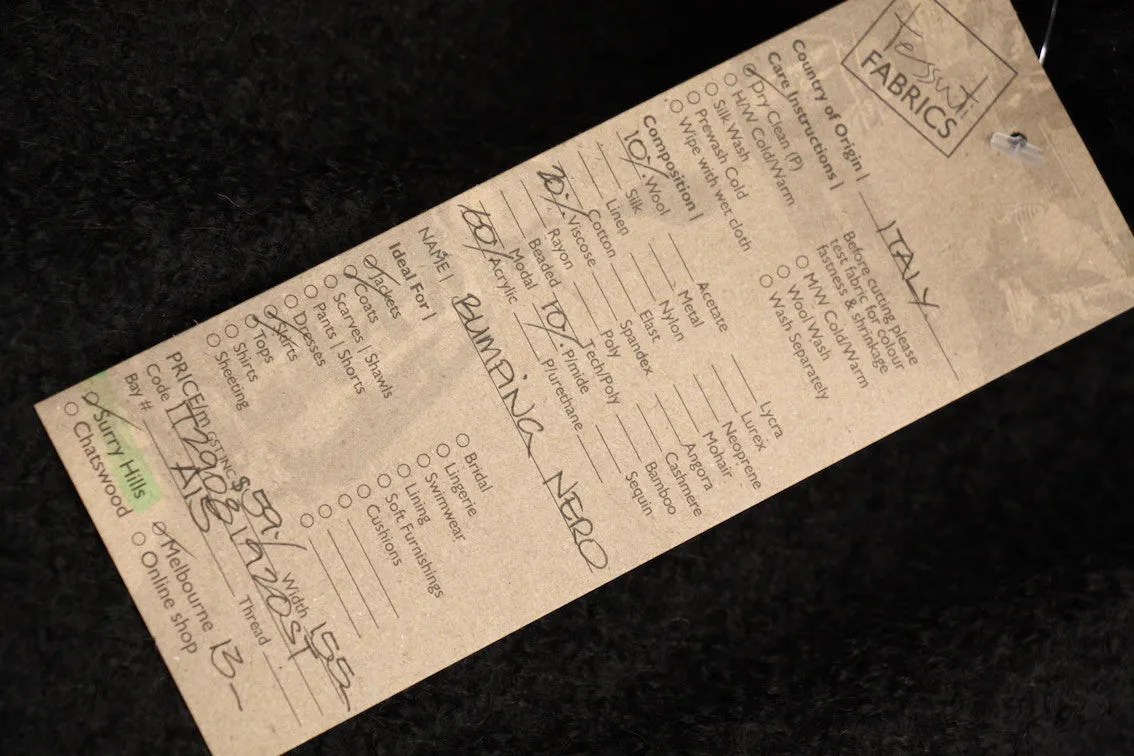 Tessuti
FABRICS
Country of Origin | ITALY
Care Instructions |
Dry Clean (P)
H/W Cold/Warm
Silk Wash
Prewash Cold
Wipe with wet cloth
Before cutting please
test fabric for colour
fastness & shrinkage
M/W Cold/Warm
Wool Wash
Wash Separately
Composition |
10% Wool
Silk
Linen
Cotton
20% Viscose
Rayon
Beaded
Modal
60% Acrylic
Acetate
Metal
Nylon
Elast
Spandex
Poly
Tech/Poly
10% P/mide
P/urethane
Lycra
Lurex
Neoprene
Mohair
Angora
Cashmere
Bamboo
Sequin
NAME | BUMPING NERO
Ideal For |
Jackets
Coats
Scarves | Shawls
Pants | Shorts
Dresses
Skirts
Tops
Shirts
Sheeting
Bridal
Lingerie
Swimwear
Lining
Soft Furnishings
Cushions
PRICE/m GST INC $59/- Width 155
Code
Bay # A15 Thread
Surry Hills
Chatswood
Melbourne 13-
Online shop